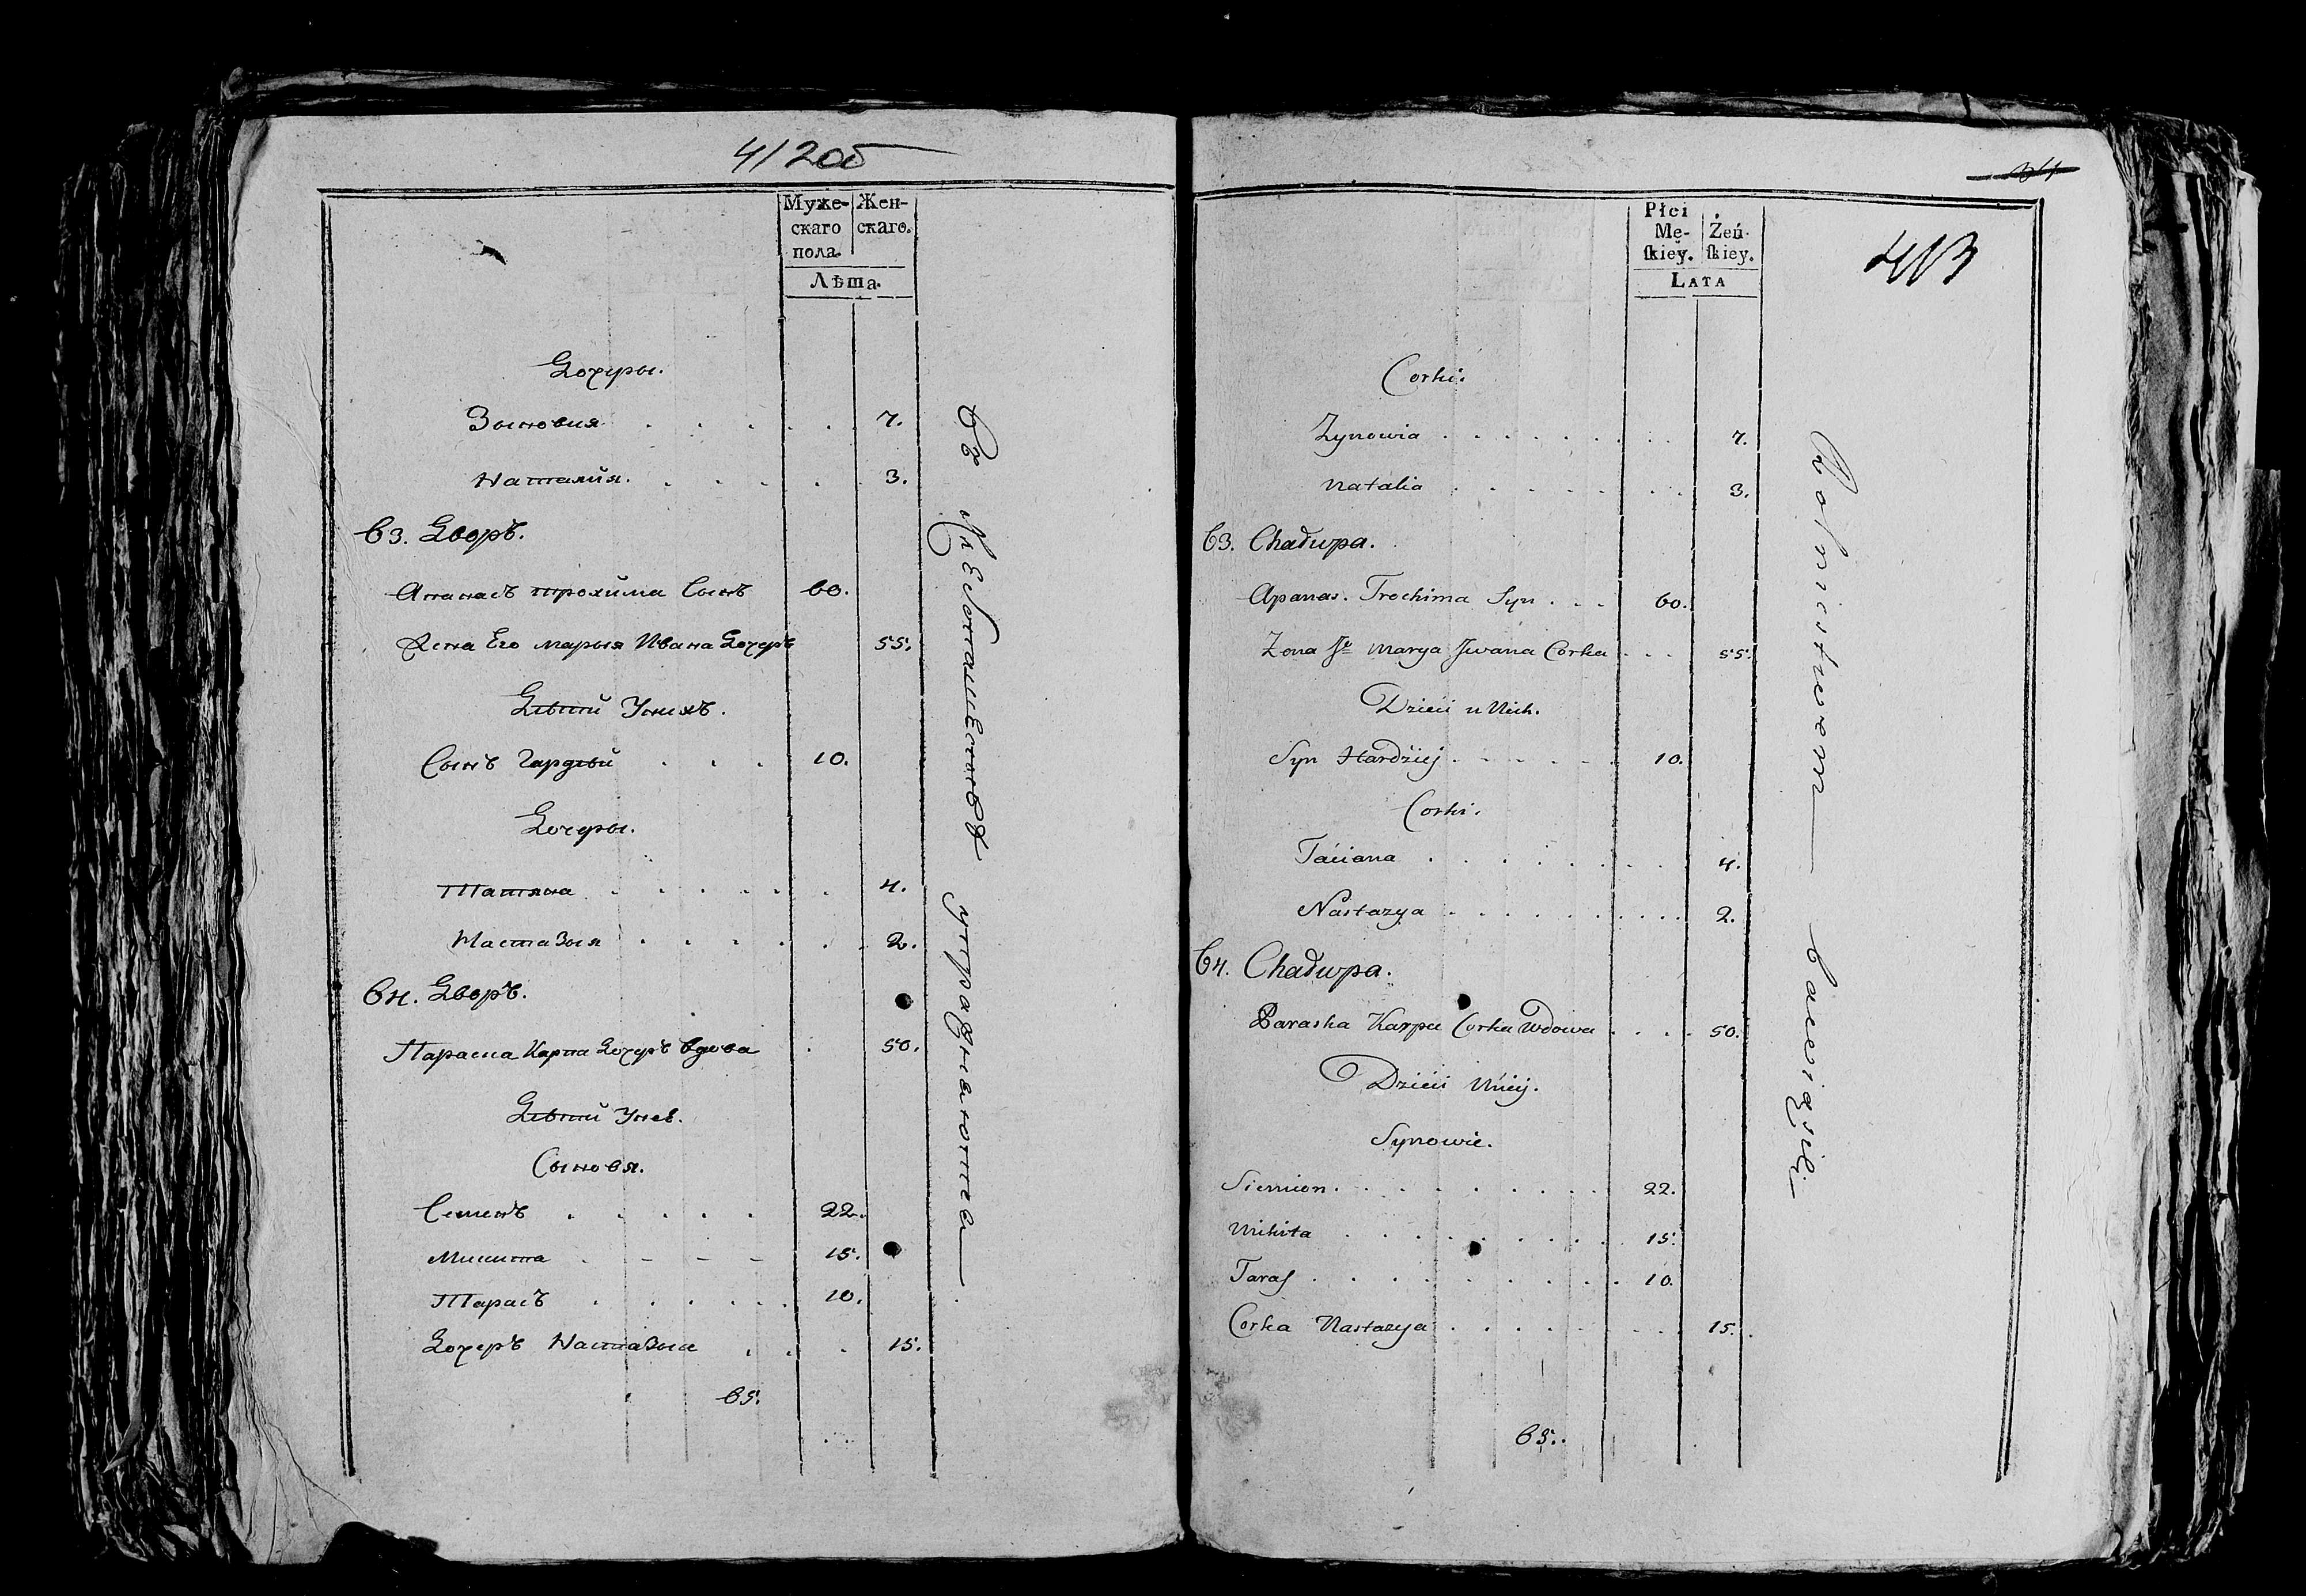 412об
Муже-
скаго
пола.
Жен-
скаго.
Лѣта.
Дочеры.
Зыновия 7.
Наталия. 3.
63. Дворъ.
Апанасъ трохима Сынъ 60.
Жена Его марыя Ивана Дочеръ 55.
Дѣти Унихъ.
Сынъ Гардѣй 10.
Дочеры.
Татяна 4.
Настазыя 2.
64. Дворъ.
Параска Карпа Дочеръ вдова 50.
Дѣти Унеё.
Сыновя.
Семенъ 22.
Микита 15.
Тарасъ 10.
Дочеръ Настазыя 15.
65.
упражняютса
413
Płci
Mę-
ſkiey.
Żeń-
ſkiey.
LATA
Corki.
Zynowia 7.
Natalia 3.
63. Chadupa.
Apanas. Trochima Syn 60.
Zona Je marya Jwana Corka 55.
Dzieci u Nich.
Syn Hardziej 10.
Corki.
Taciana 4.
Nastazya 2.
64. Chadupa.
Paraska Karpa Corka Wdowa 50.
Dzieci Uniey.
Synowie.
Siemion 22.
Mikita 15.
Taraſ 10.
Corka Nastazya 15.
65.
Rolnictwem bawią się